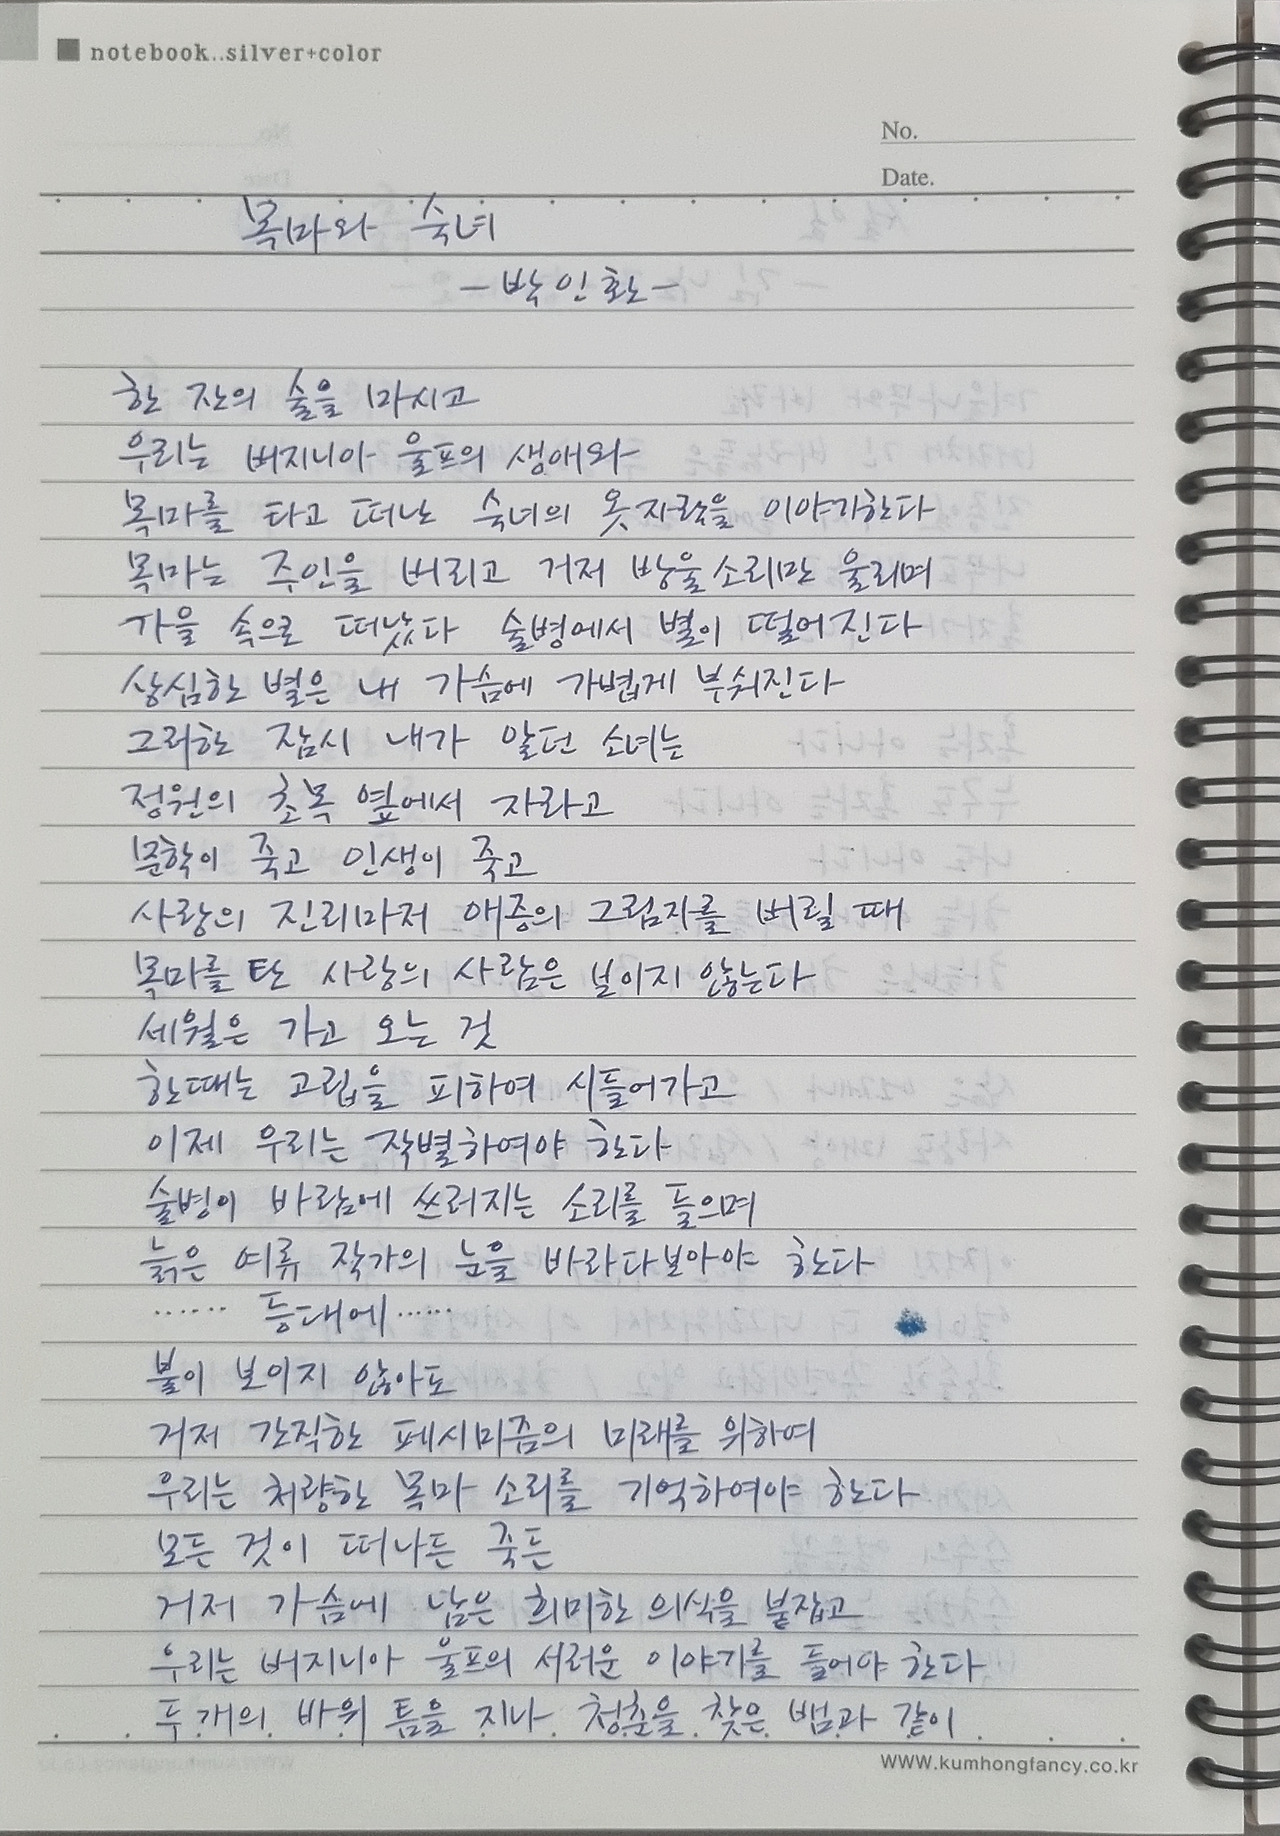 notebook..silver+color
No.
Date.
목마와 숙녀
- 박인환 -
한 잔의 술을 마시고
우리는 버지니아 울프의 생애와
목마를 타고 떠난 숙녀의 옷자락을 이야기한다
목마는 주인을 버리고 거저 방울소리만 울리며
가을 속으로 떠났다 술병에서 별이 떨어진다
상심한 별은 내 가슴에 가볍게 부숴진다
그러한 잠시 내가 알던 소녀는
정원의 초목 옆에서 자라고
문학이 죽고 인생이 죽고
사랑의 진리마저 애증의 그림자를 버릴 때
목마를 탄 사랑의 사람은 보이지 않는다
세월은 가고 오는 것
한때는 고립을 피하여 시들어가고
이제 우리는 작별하여야 한다
술병이 바람에 쓰러지는 소리를 들으며
늙은 여류 작가의 눈을 바라다보아야 한다
…… 등대에 ……
불이 보이지 않아도
거저 간직한 페시미즘의 미래를 위하여
우리는 처량한 목마 소리를 기억하여야 한다
모든 것이 떠나든 죽든
거저 가슴에 남은 희미한 의식을 붙잡고
우리는 버지니아 울프의 서러운 이야기를 들어야 한다
두 개의 바위 틈을 지나 청춘을 찾은 뱀과 같이
WWW.kumhongfancy.co.kr